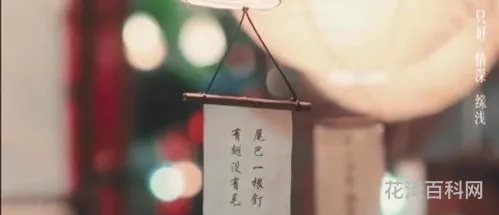 尾巴一根釘
有翅沒有毛
只好 情深 缘浅
花泽百科网